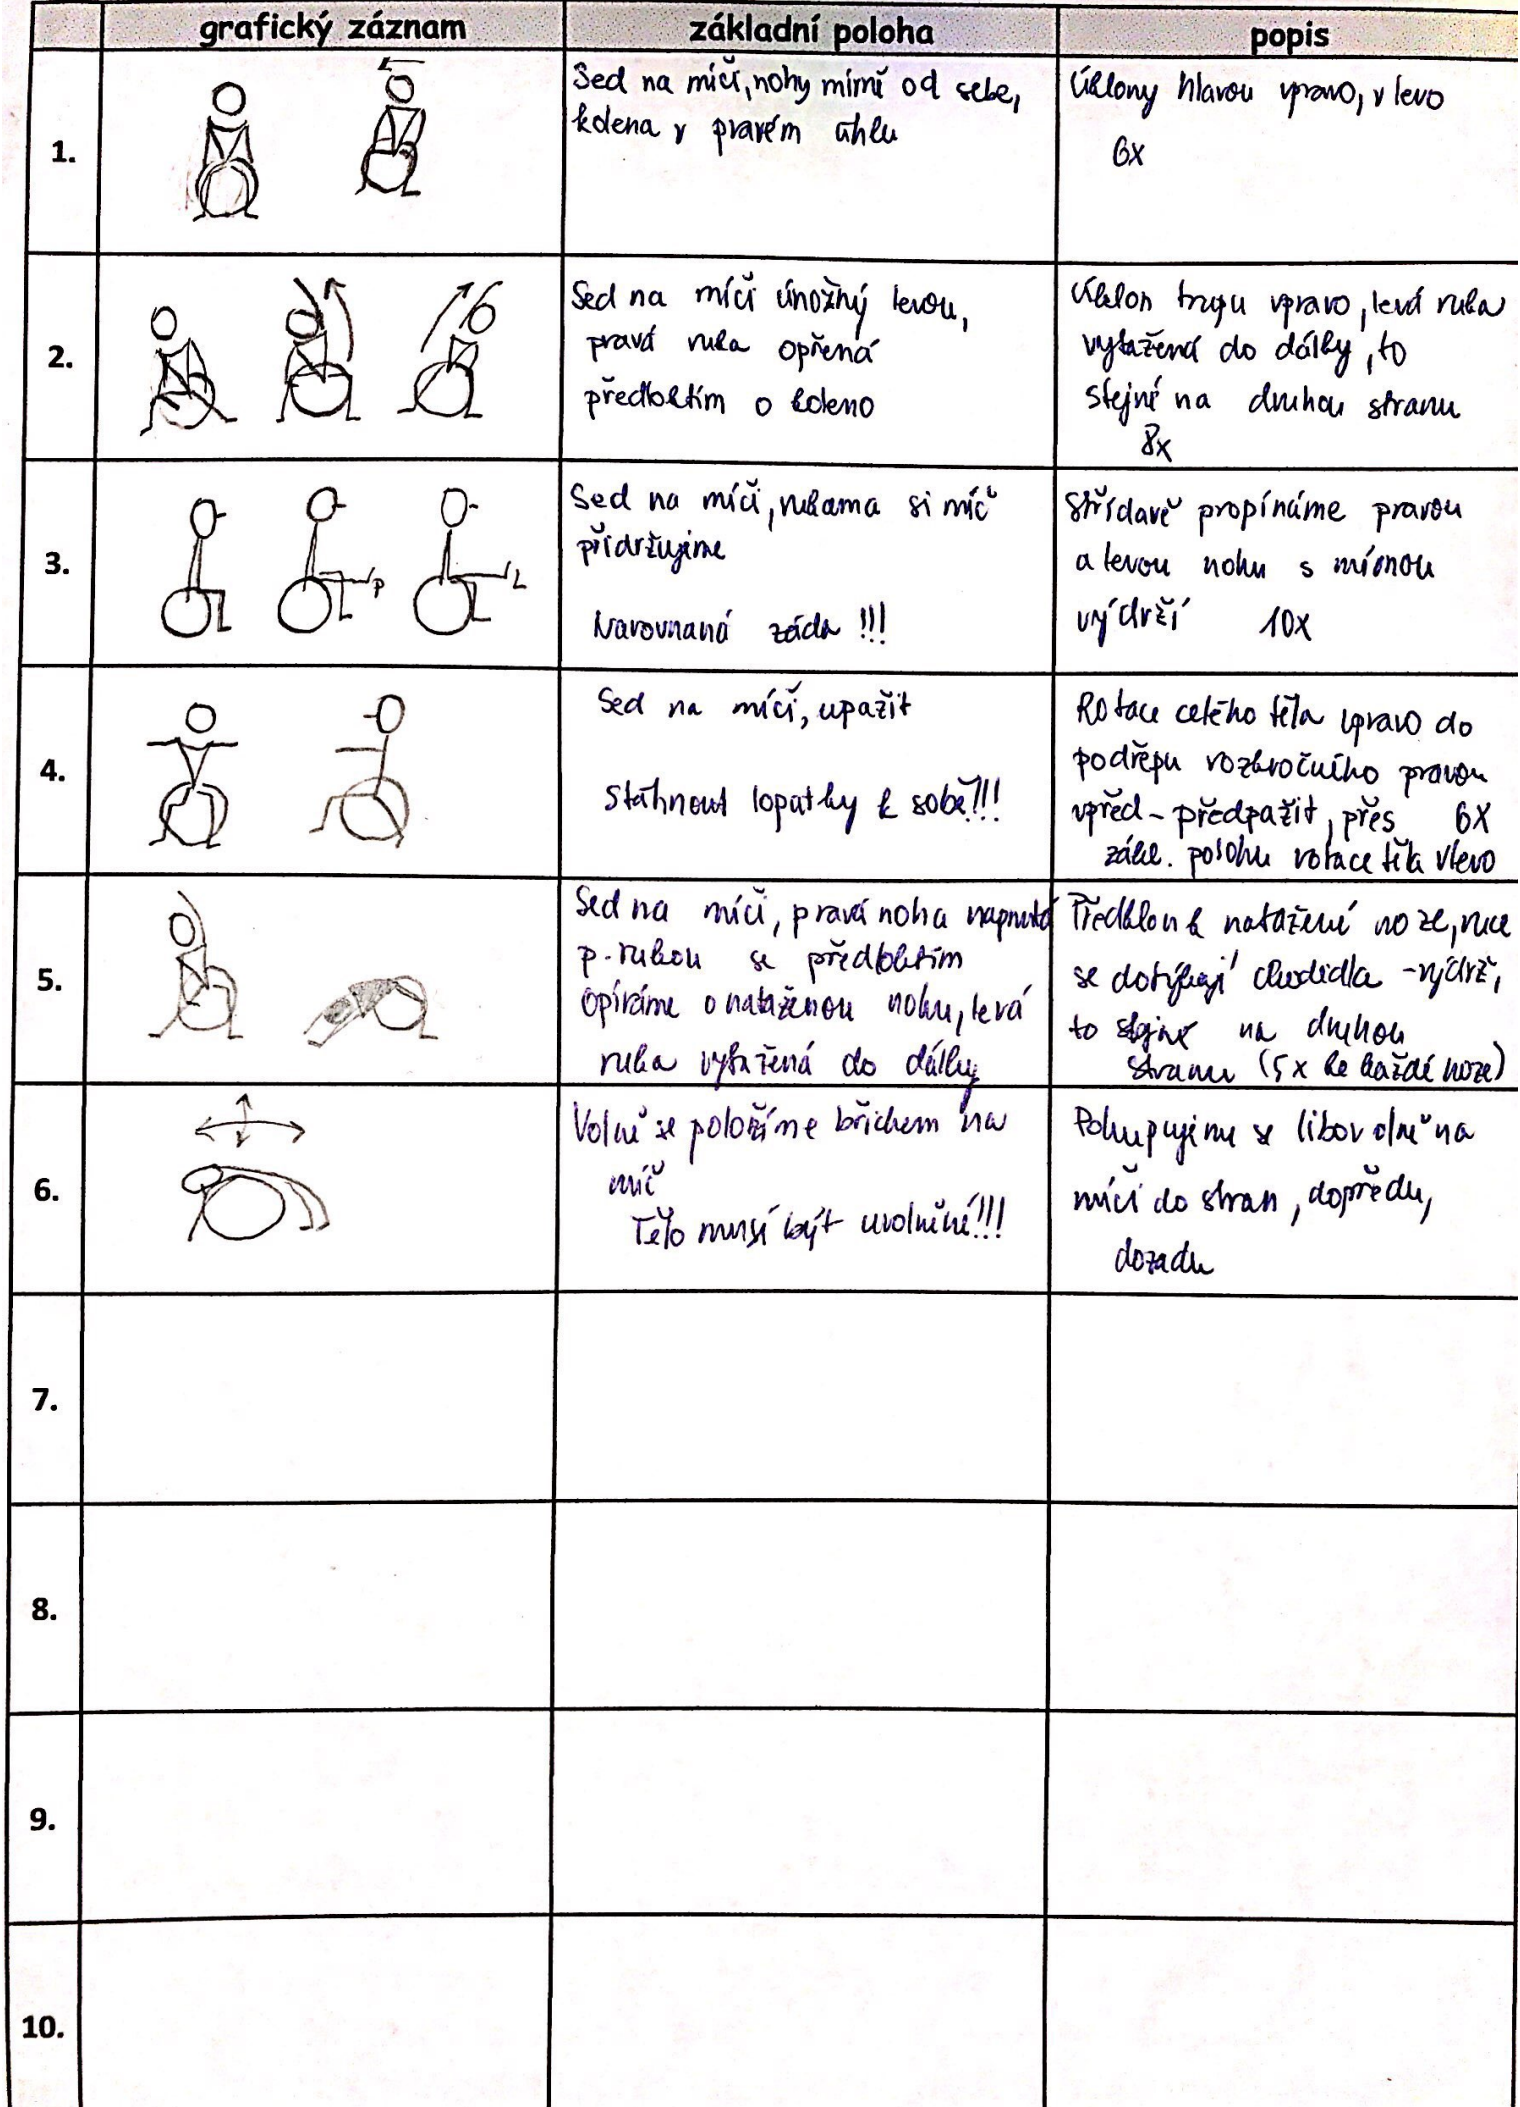 grafický záznam
základní poloha
popis
1.
Sed na míči, nohy mírně od sebe,
kolena v pravém úhlu
Úklony hlavou vpravo, vlevo
6x
2.
Sed na míči únožný levou,
pravá ruka opřená
předloktím o koleno
Úklon trupu vpravo, levá ruka
vytažená do dálky, to
stejné na druhou stranu
8x
3.
Sed na míči, rukama si míč
přidržujeme
Narovnaná záda !!!
Střídavě propínáme pravou
a levou nohu s mírnou
výdrží 10x
4.
P
L
Sed na míči, upažit
Stáhnout lopatky k sobě!!!
Rotace celého těla vpravo do
podřepu rozkročního pravou
vpřed - předpažit, přes 6x
zákl. polohu rotace těla vlevo
5.
Sed na míči, pravá noha napnutá
p. rukou se předloktím
opíráme o nataženou nohu, levá
ruka vytažená do dálky
Předklon k natažené noze, ruce
se dotýkají chodidla - výdrž,
to stejné na druhou
stranu (5x ke každé noze)
6.
Volně se položíme břichem na
míč
Tělo musí být uvolněné!!!
Pohupujeme se libovolně na
míči do stran, dopředu,
dozadu
7.
8.
9.
10.